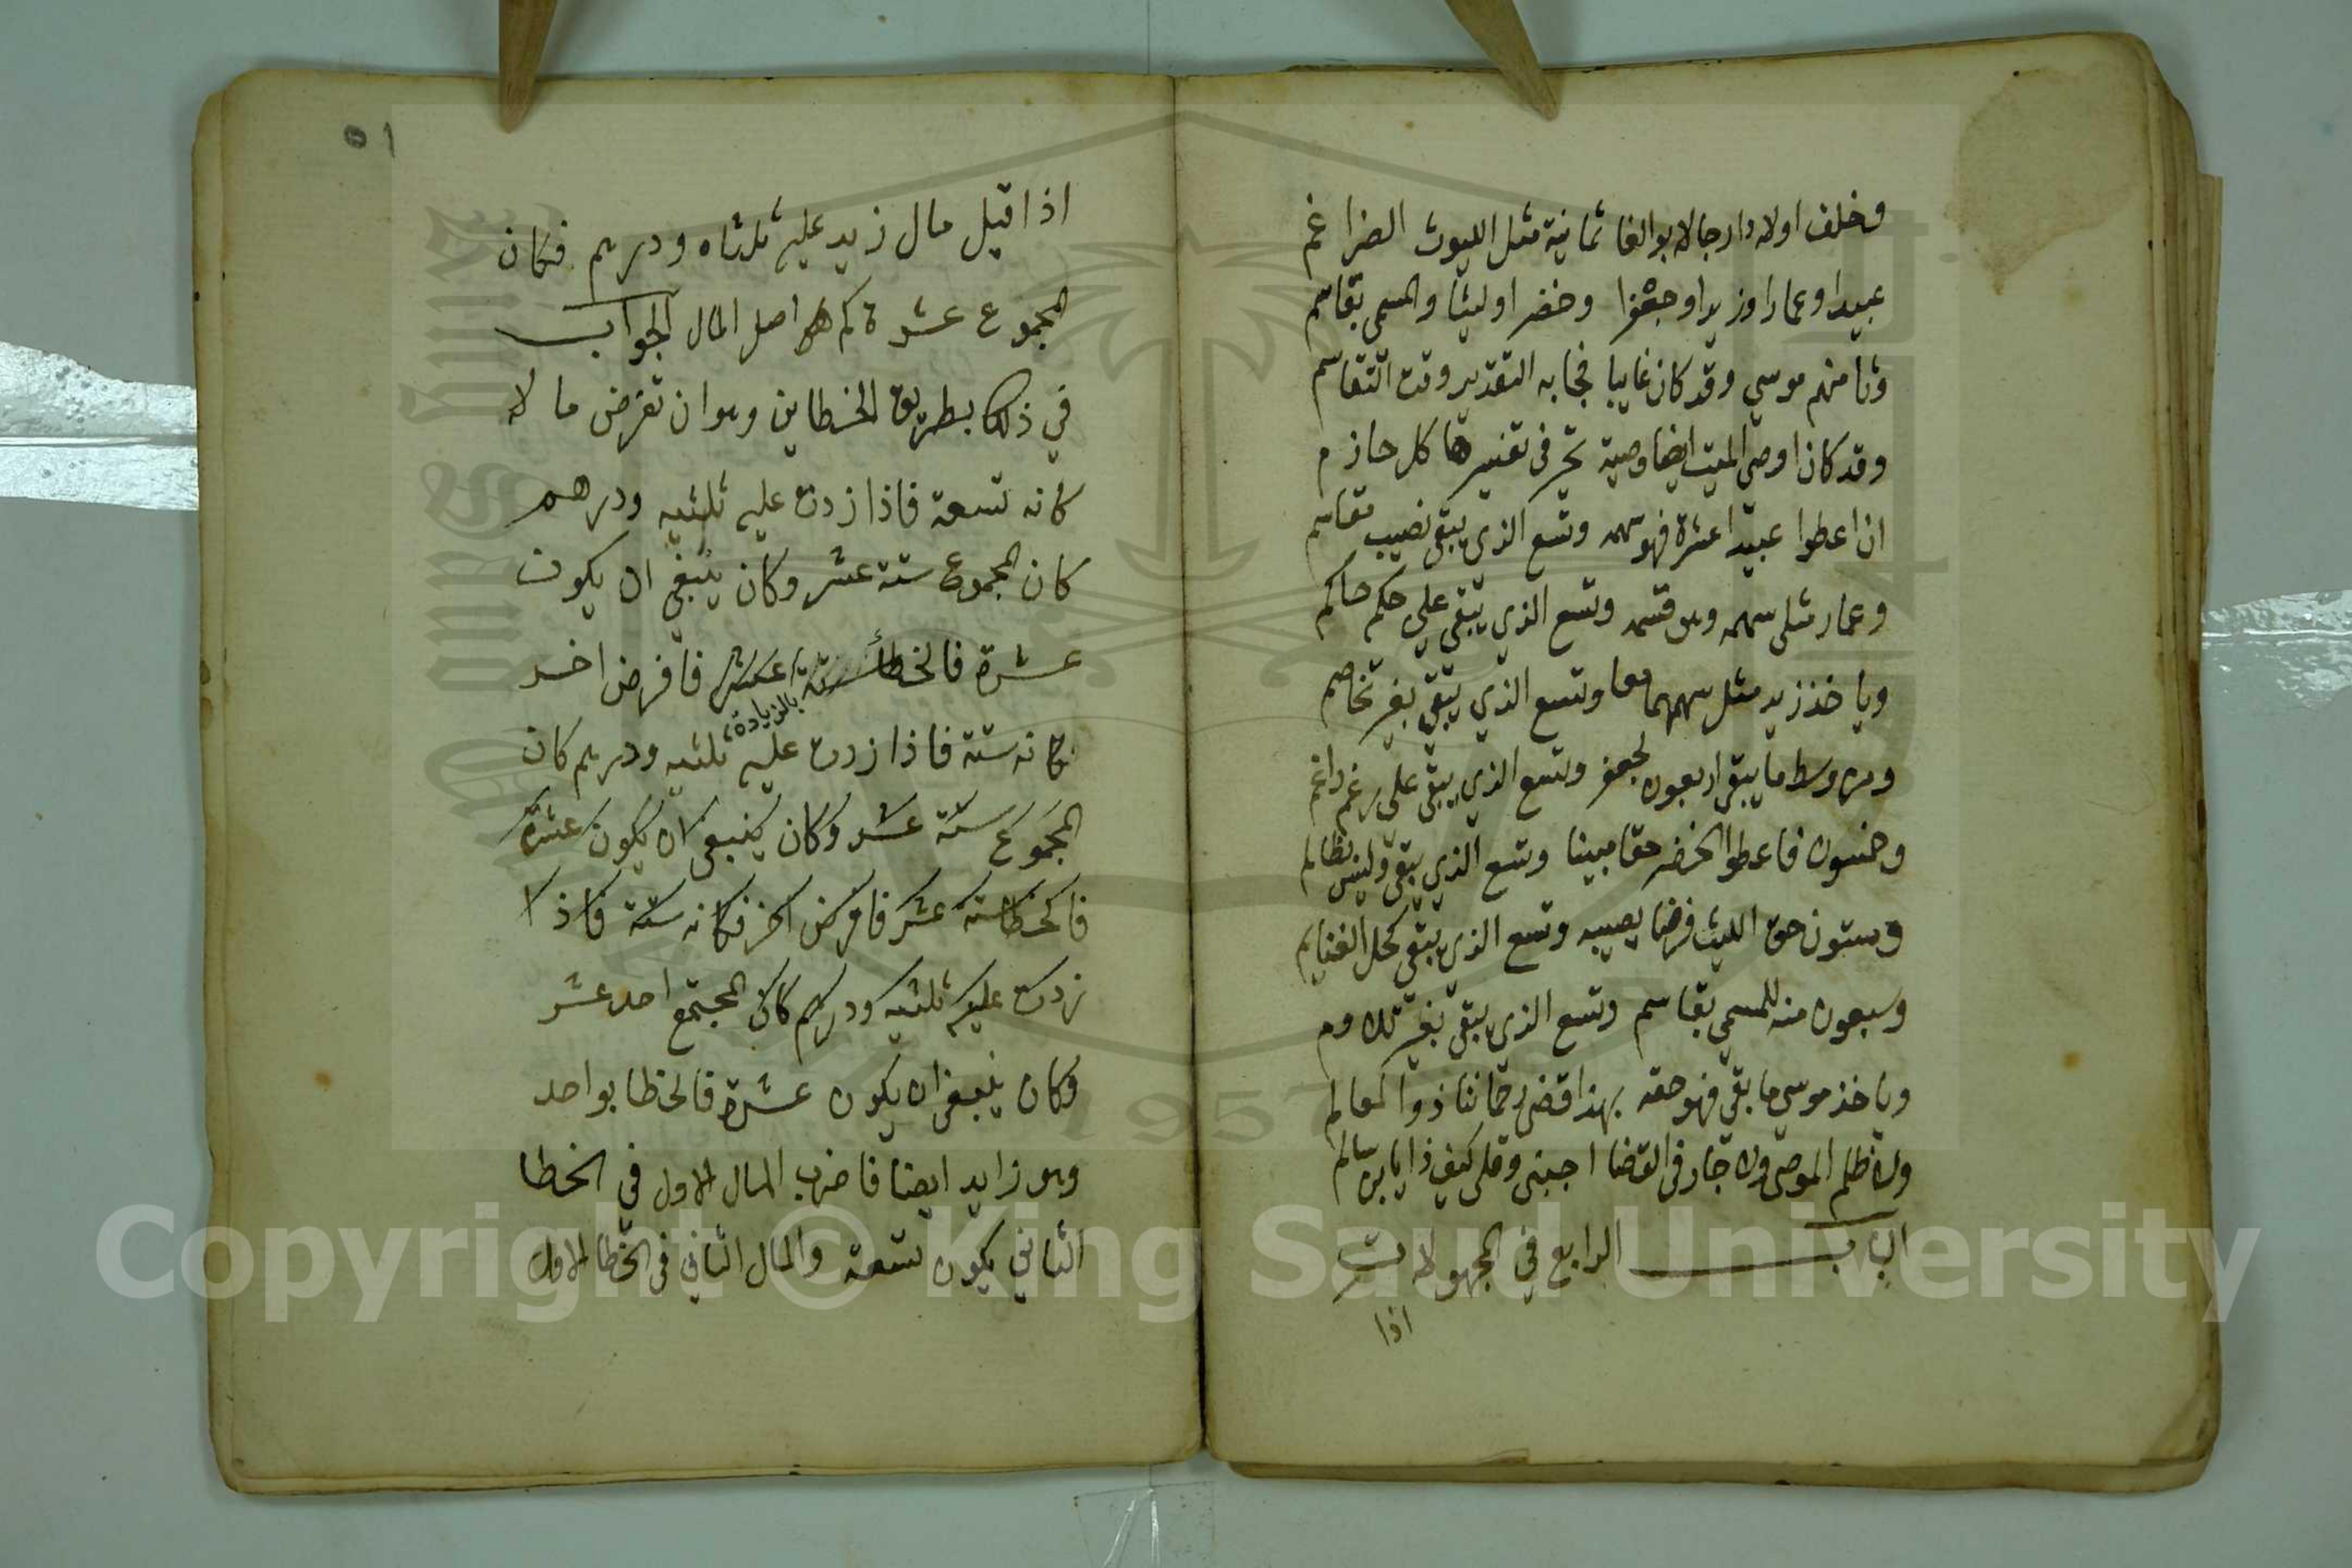 وخلف اولادا رجالا بوالغا ثمانية مثل الليوث الضراغم
عبيدا وعمارا وزيدا وجعفرا وخضرا وليثا والمسمى بقاسم
وثامنهم موسي وقد كان غايبا فجا به التقدير وقت التقاسم
وقد كان اوصى الميت ايضا وصية تحير في تفسيرها كل حازم
ان اعطوا عبيدا عشرة فهو سهمه وتسع الذي يبقى نصيب مقاسم
وعمار مثلي سهمه وهو قسمه وتسع الذي يبقى علي حكم حاكم
وياخذ زيد مثل سهمهما معا وتسع الذي يبقى بغير تخاصم
ومن وسط ما يبقى اربعون لجعفر وتسع الذي يبقى على رغم راغم
وخمسون فاعطوا الخضر حقا مبينا وتسع الذي يبقى وليس بظالم
وستون حق الليث فرضا يصيبه وتسع الذي يبقى كحل الغنايم
وسبعون منه للمسمى بقاسم وتسع الذي يبقى بغير تلاوم
وياخذ موسي ما بقي فهو حقه بهذا قضى رحماننا ذو المعالم
ولا ظلم الموصى ولا جار في القضا اجبني وقل كيف ذا يا بن سالم
الباب الرابع في المجهولات
اذا
اذا قيل مال زيد عليه ثلثاه ودرهم فكان
المجموع عشرة كم هو اصل المال الجواب
في ذلك بطريق الخطاين وهو ان تفرض مالا
كانه تسعة فاذا زدت عليه ثلثيه ودرهم
كان المجموع ستة عشر وكان ينبغي ان يكون
عشرة فالخطأ ستة عشر فافرض اخر
بالزيادة
كانه ستة فاذا زدت عليه ثلثيه ودرهم كان
المجموع ستة عشر وكان ينبغي ان يكون عشرة
فالخطا ستة عشر فافرض اخر فكانه ستة فاذا
زدت عليه ثلثيه ودرهم كان المجتمع احد عشر
وكان ينبغي ان يكون عشرة فالخطا بواحد
وهو زايد ايضا فاضرب المال الاول في الخطا
الثاني يكون تسعة والمال الثاني في الخطا الاول
Copyright © King Saud University
1957